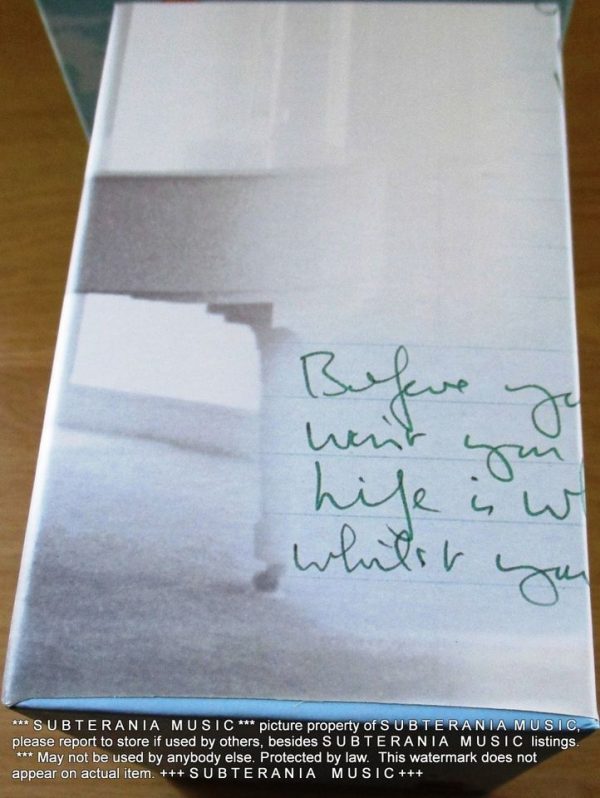 Before yo
you
Life is wh
whilst you
*** SUBTERANIA MUSIC *** picture property of SUBTERANIA MUSIC,
please report to store if used by others, besides SUBTERANIA MUSIC listings.
*** May not be used by anybody else. Protected by law. This watermark does not
appear on actual item. +++ SUBTERANIA MUSIC +++